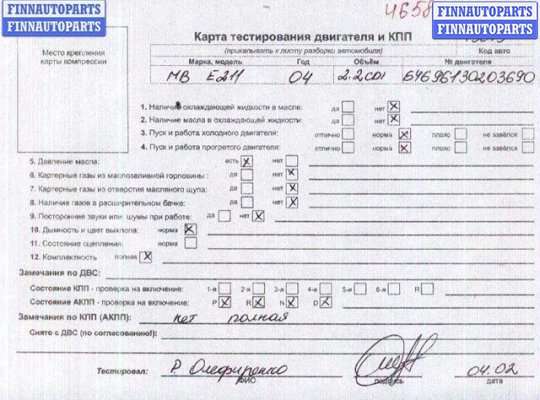 FINNAUTOPARTS
FINNAUTOPARTS
4658
FINNAUTOPARTS
FINNAUTOPARTS
Место крепления
карты компрессии
Карта тестирования двигателя и КПП
(прикалывать к листу разборки автомобиля)
Код авто
Марка, модель Год Объём № двигателя
MB E211 04 2.2CDI 64696130203690
1. Наличие охлаждающей жидкости в масле: да нет X
2. Наличие масла в охлаждающей жидкости: да нет X
3. Пуск и работа холодного двигателя: отлично норма X плохо не завёлся
4. Пуск и работа прогретого двигателя: отлично норма X плохо не завёлся
5. Давление масла: есть X нет
6. Картерные газы из маслозаливной горловины: да нет X
7. Картерные газы из отверстие масляного щупа: да нет X
8. Наличие газов в расширительном бачке: да нет X
9. Посторонние звуки или шумы при работе: да нет X
10. Дымность и цвет выхлопа: норма X
11. Состояние сцепления: норма
12. Комплектность полная X
Замечания по ДВС:
Состояние КПП - проверка на включение: 1-я 2-я 3-я 4-я 5-я 6-я R
Состояние АКПП - проверка на включение: P X R X N X D X
Замечания по КПП (АКПП): нет полная
Снято с ДВС (по согласованию!):
Тестировал: Р. Олефиренко 04.02
ФИО подпись дата
FINNAUTOPARTS
FINNAUTOPARTS
FINNAUTOPARTS
FINNAUTOPARTS